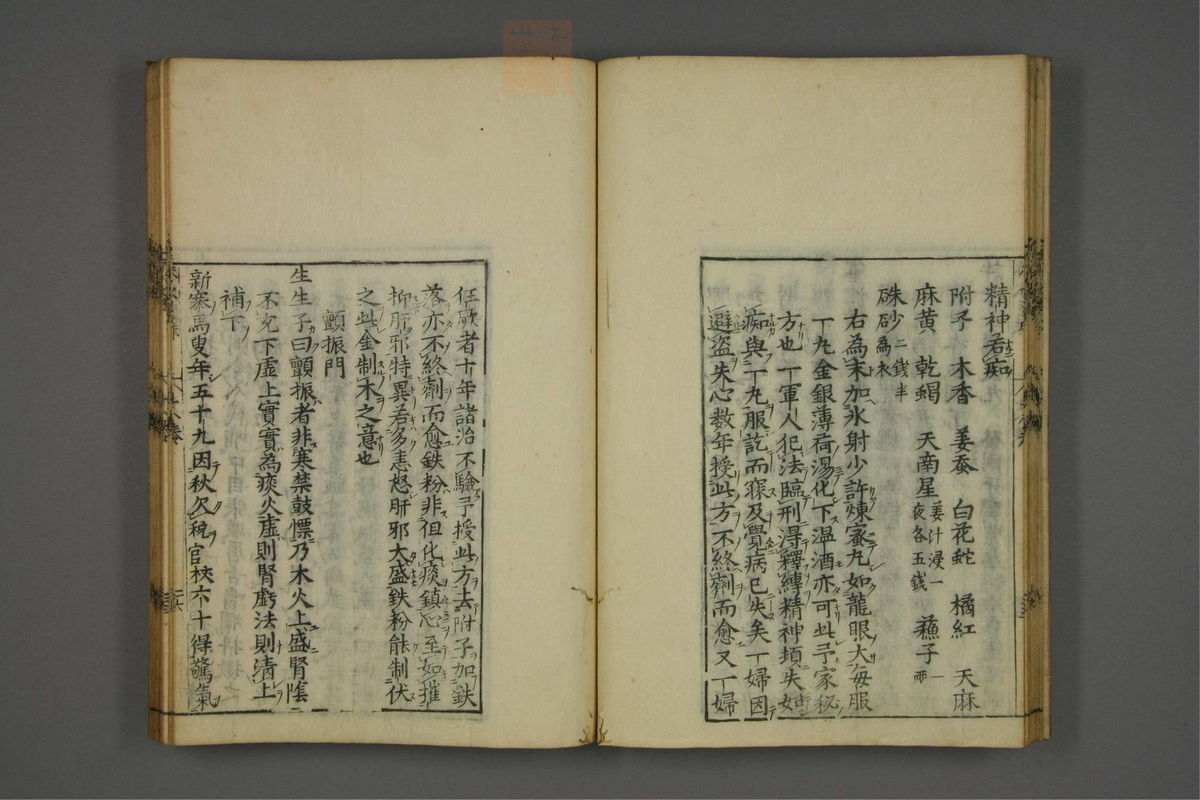 精神若痴
附子 木香 姜蚕 白花蛇 橘紅 天麻
麻黄 乾蝎 天南星姜汁浸一夜各五錢 蘓子一両
硃砂二錢半為衣
右為末加氷射少許煉蜜丸如龍眼大每服
一丸金銀薄荷湯化下温酒亦可此予家秘
方也一軍人犯法臨刑得釋縛精神頓失如
痴與一丸服訖而寐及覺病已失矣一婦因
避盗失心数年授此方不終劑而愈又一婦
狂厥者十年諸治不驗予授此方去附子加鉄
落亦不終劑而愈鉄粉非徂化痰鎮心至如摧
抑肝邪特異若多恚怒肝邪大盛鉄粉能制伏
之此金制木之意也
顫振門
生生子曰顫振者非寒禁鼓慄乃木火上盛腎陰
不充下虚上實實為痰火虚則腎虧法則清上
補下
新寨馬叟年五十九因秋欠稅官杖六十得驚氣